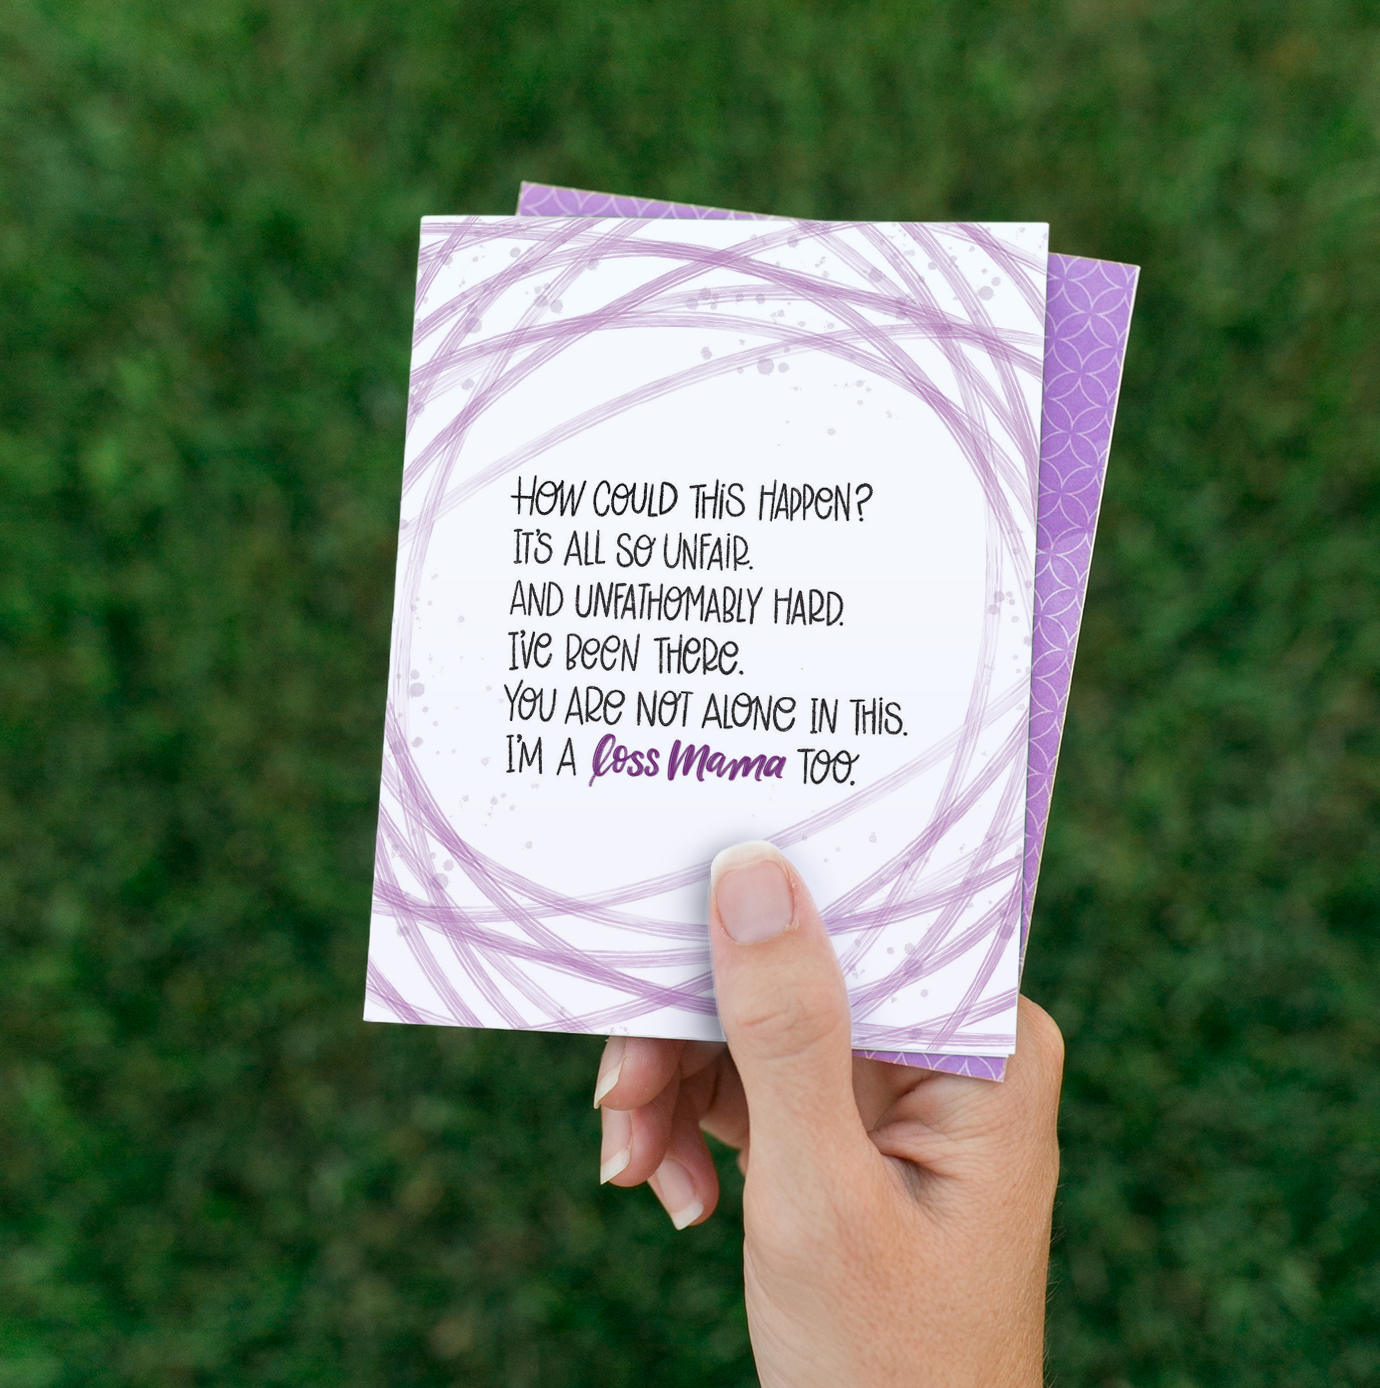 HOW COULD THiS HAPPEN?
IT'S ALL SO UNFAiR.
AND UNFATHOMABLY HARD.
I'VE BEEN THERE.
YOU ARE NOT ALONE IN THiS.
I'M A loss Mama TOO.